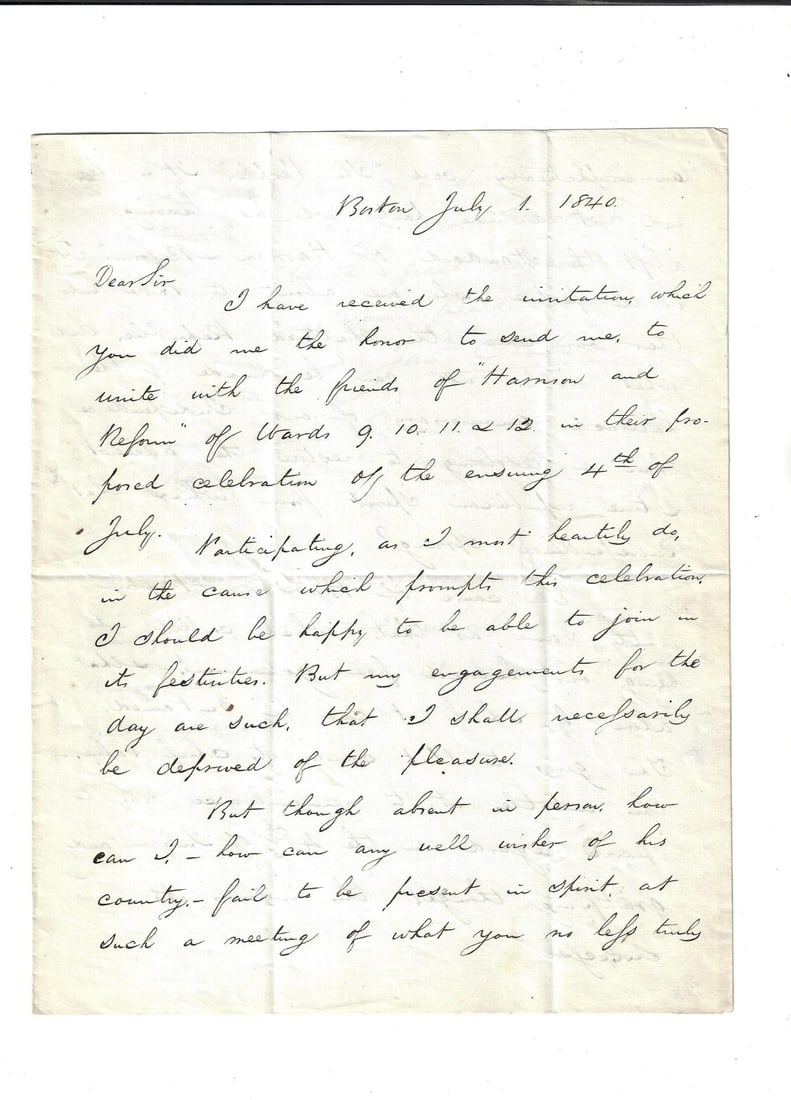 Boston July 1. 1840.
Dear Sir
I have received the invitation, which
you did me the honor to send me, to
unite with the friends of "Harrison and
Reform" of Wards 9. 10. 11. & 12 in their pro-
posed celebration of the ensuing 4th of
July.
Participating, as I most heartily do,
in the cause which prompts this celebration,
I should be happy to be able to join in
its festivities. But my engagements for the
day are such, that I shall necessarily
be deprived of the pleasure.
But though absent in person, how
can I, – how can any well wisher of his
country, – fail to be present in spirit, at
such a meeting of what you no less truly